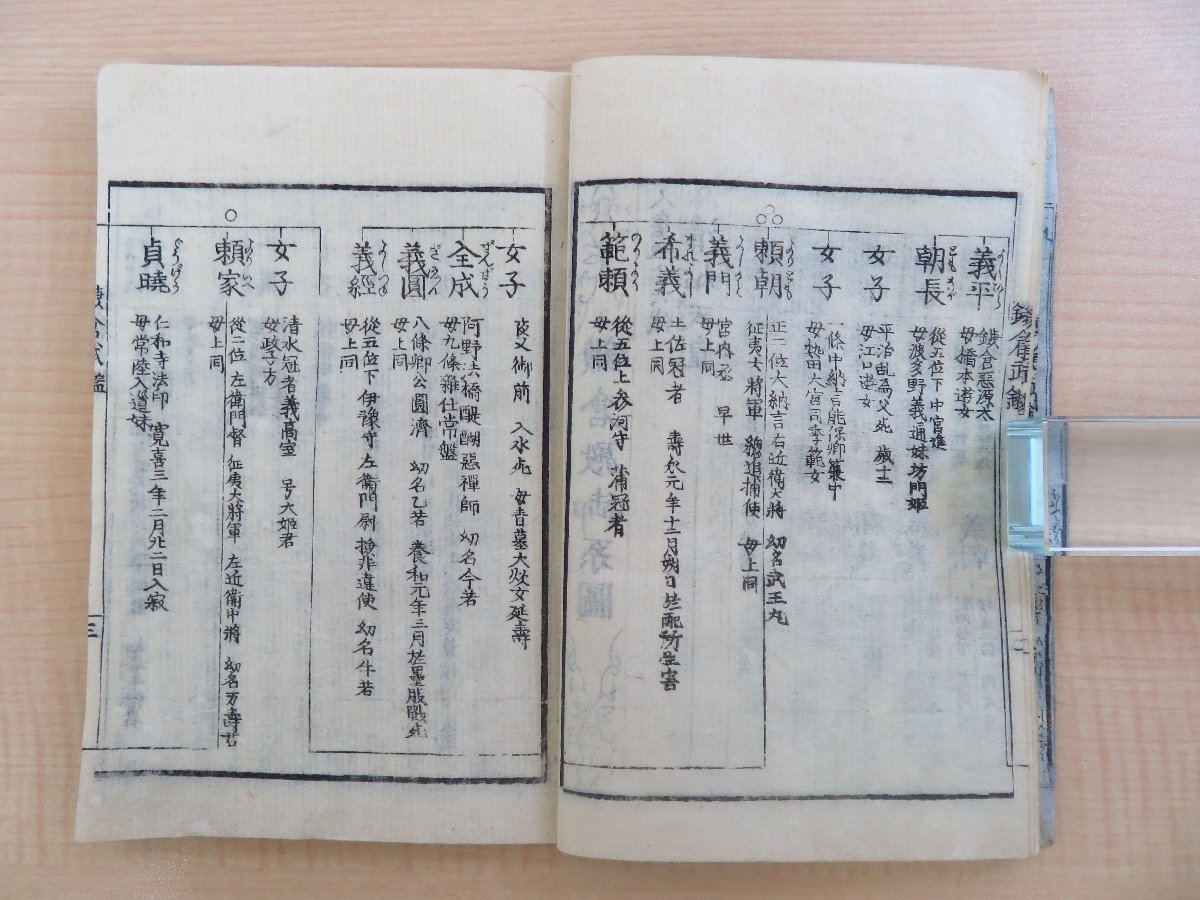 義平
鎌倉悪源太
母橋本遊女
朝長
從五位下中宮進
母波多野義通妹坊門姫
女子
平治乱為父死 歳十二
母江口遊女
女子
一條中納言能保卿簾中
母熱田大宮司季範女
頼朝
正二位大納言右近衛大將 幼名武王丸
征夷大將軍 總追捕使 母上同
義門
宮内丞 早世
母上同
希義
土佐冠者 壽永元年十二月朔日於配所生害
母上同
範頼
從五位上参河守 蒲冠者
母上同
女子
夜叉御前 入水死 母青墓大炊女延壽
全成
阿野法橋醍醐惡禅師 幼名今若
母九條雜仕常盤
義圓
八條卿公圓濟 幼名乙若 養和元年三月於墨股戰死
母上同
義経
從五位下伊豫守左衛門尉 檢非違使 幼名牛若
母上同
女子
清水冠者義高室 号大姫君
母政子方
頼家
從二位 左衛門督 征夷大將軍 左近衛中將 幼名万壽君
母上同
貞曉
仁和寺法印 寛喜三年二月廿二日入寂
母常陸入道妹
三